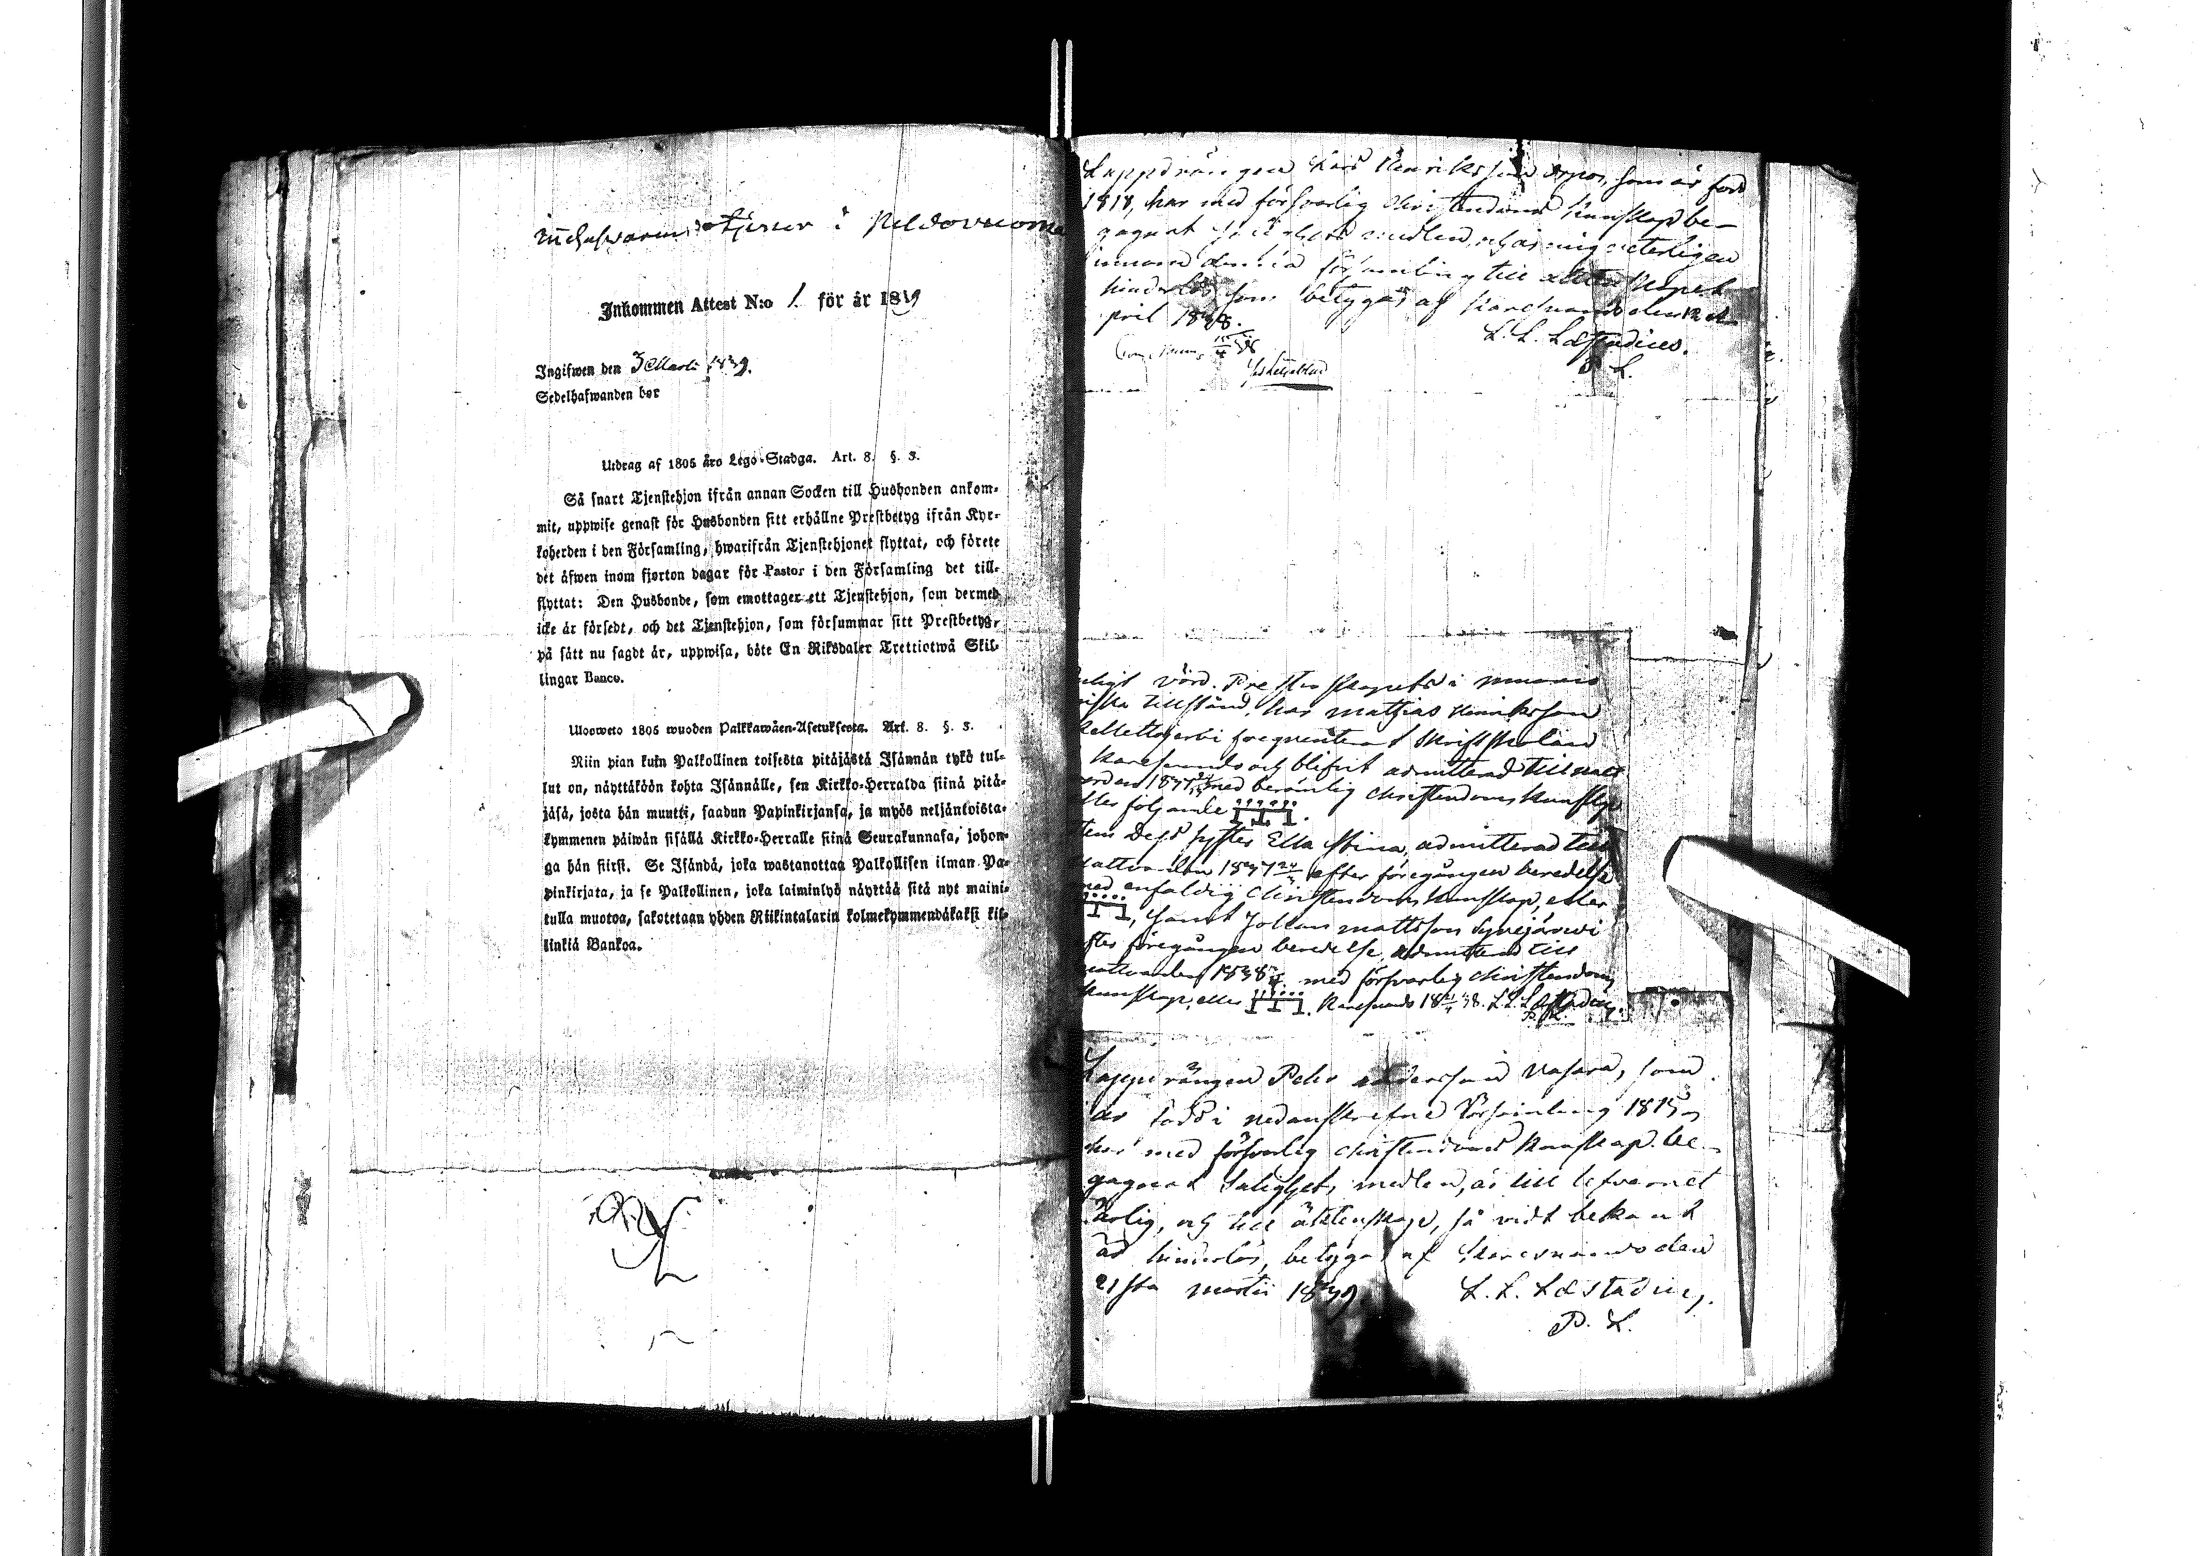 tjener i Peldovuoma
Inkommen Attest N:o 1. för år 1839
Ingifwen den 3 Martii 1839.
Sedelhafwanden bör
Utdrag af 1805 års Lego-Stadga. Art. 8. §. 3.
Så snart Tjenstehjon ifrån annan Socken till Husbonden ankom-
mit, uppwise genast för Husbonden sitt erhållne Prestbetyg ifrån Kyr-
koherden i den Församling, hwarifrån Tjenstehjonet flyttat, och förete
det äfwen inom fjorton dagar för Pastor i den Församling det till-
flyttat: Den Husbonde, som emottager ett Tjenstehjon, som dermed
icke är försedt, och det Tjenstehjon, som försummar sitt Prestbetyg,
på sätt nu sagdt är, uppwisa, böte En Riksdaler Trettiotwå Skil-
lingar Banco.
Ulosweto 1805 wuoden Palkkawäen-Asetuksesta. Art. 8. §. 3.
Niin pian kuin Palkollinen toisesta pitäjästä Isännän tykö tul-
lut on, näyttäköön kohta Isännälle, sen Kirkko-Herralda siinä pitä-
jäsä, josta hän muutti, saadun Papinkirjansa, ja myös neljäntoista-
kymmenen päiwän sisällä Kirkko-Herralle siinä Seurakunnasa, johon-
ga hän siirsi. Se Isändä, joka wastanottaa Palkollisen ilman Pa-
pinkirjata, ja se Palkollinen, joka laiminlyö näyttää sitä nyt maini-
tulla muotoa, sakotetaan yhden Riikintalarin kolmekymmendäkaksi kil-
linkiä Bankoa.
Lappdrängen Lars Henriksson som är född
1818, har med försvarlig Christendoms kunskap be-
gagnat medlen, och är mig veterligen
innom denna församling till äktenskapet
hinderlös, som betygas af Karesuando den 12 A-
pril 1838.
L. L. Læstadius.
P. L.
vörd. Presterskapets i
tillstånd, har Mathias Henriksson
frequenterat Skriftskolan
Karesuando och blifvit admitterad till natt-
varden 1837 med berömlig Christendoms kunskap
eller följande
Dess syster Ella Stina, admitterad till
nattvarden 1837 24/3 efter föregången beredelse
med enfaldig Christendoms kunskap, eller
, samt Johan Mattsson Syvejärwi
efter föregången beredelse, admitterad till
nattvarden 1838 med försvarlig Christendoms
kunskap, eller Karesuando 1838. L. L. Læstadius.
P. L.
Lappdrängen Pehr Andersson Vasara, som
är född i nedanskrefne Församling 1815,
har med försvarlig Christendoms kunskap be-
gagnat Salighets medlen, är till lefvernet
ärlig, och till äktenskap, så vidt bekant
är hinderlös, betygas af Karesuando den
21sta Martii 1839
L. L. Læstadius.
P. L.